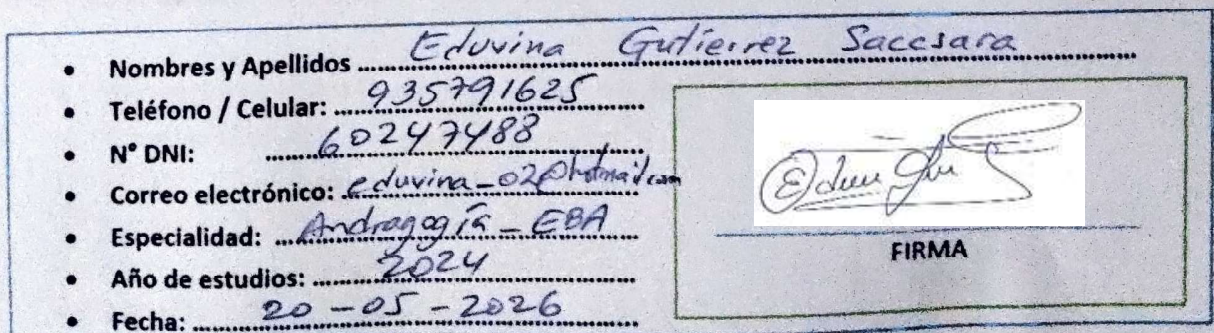 • Nombres y Apellidos Eduvina Gutierrez Saccsara
• Teléfono / Celular: 935791625
• N° DNI: 60247488
• Correo electrónico: eduvina_02@hotmail.com
• Especialidad: Andragogía _ EBA
• Año de estudios: 2024
• Fecha: 20-05-2026
FIRMA